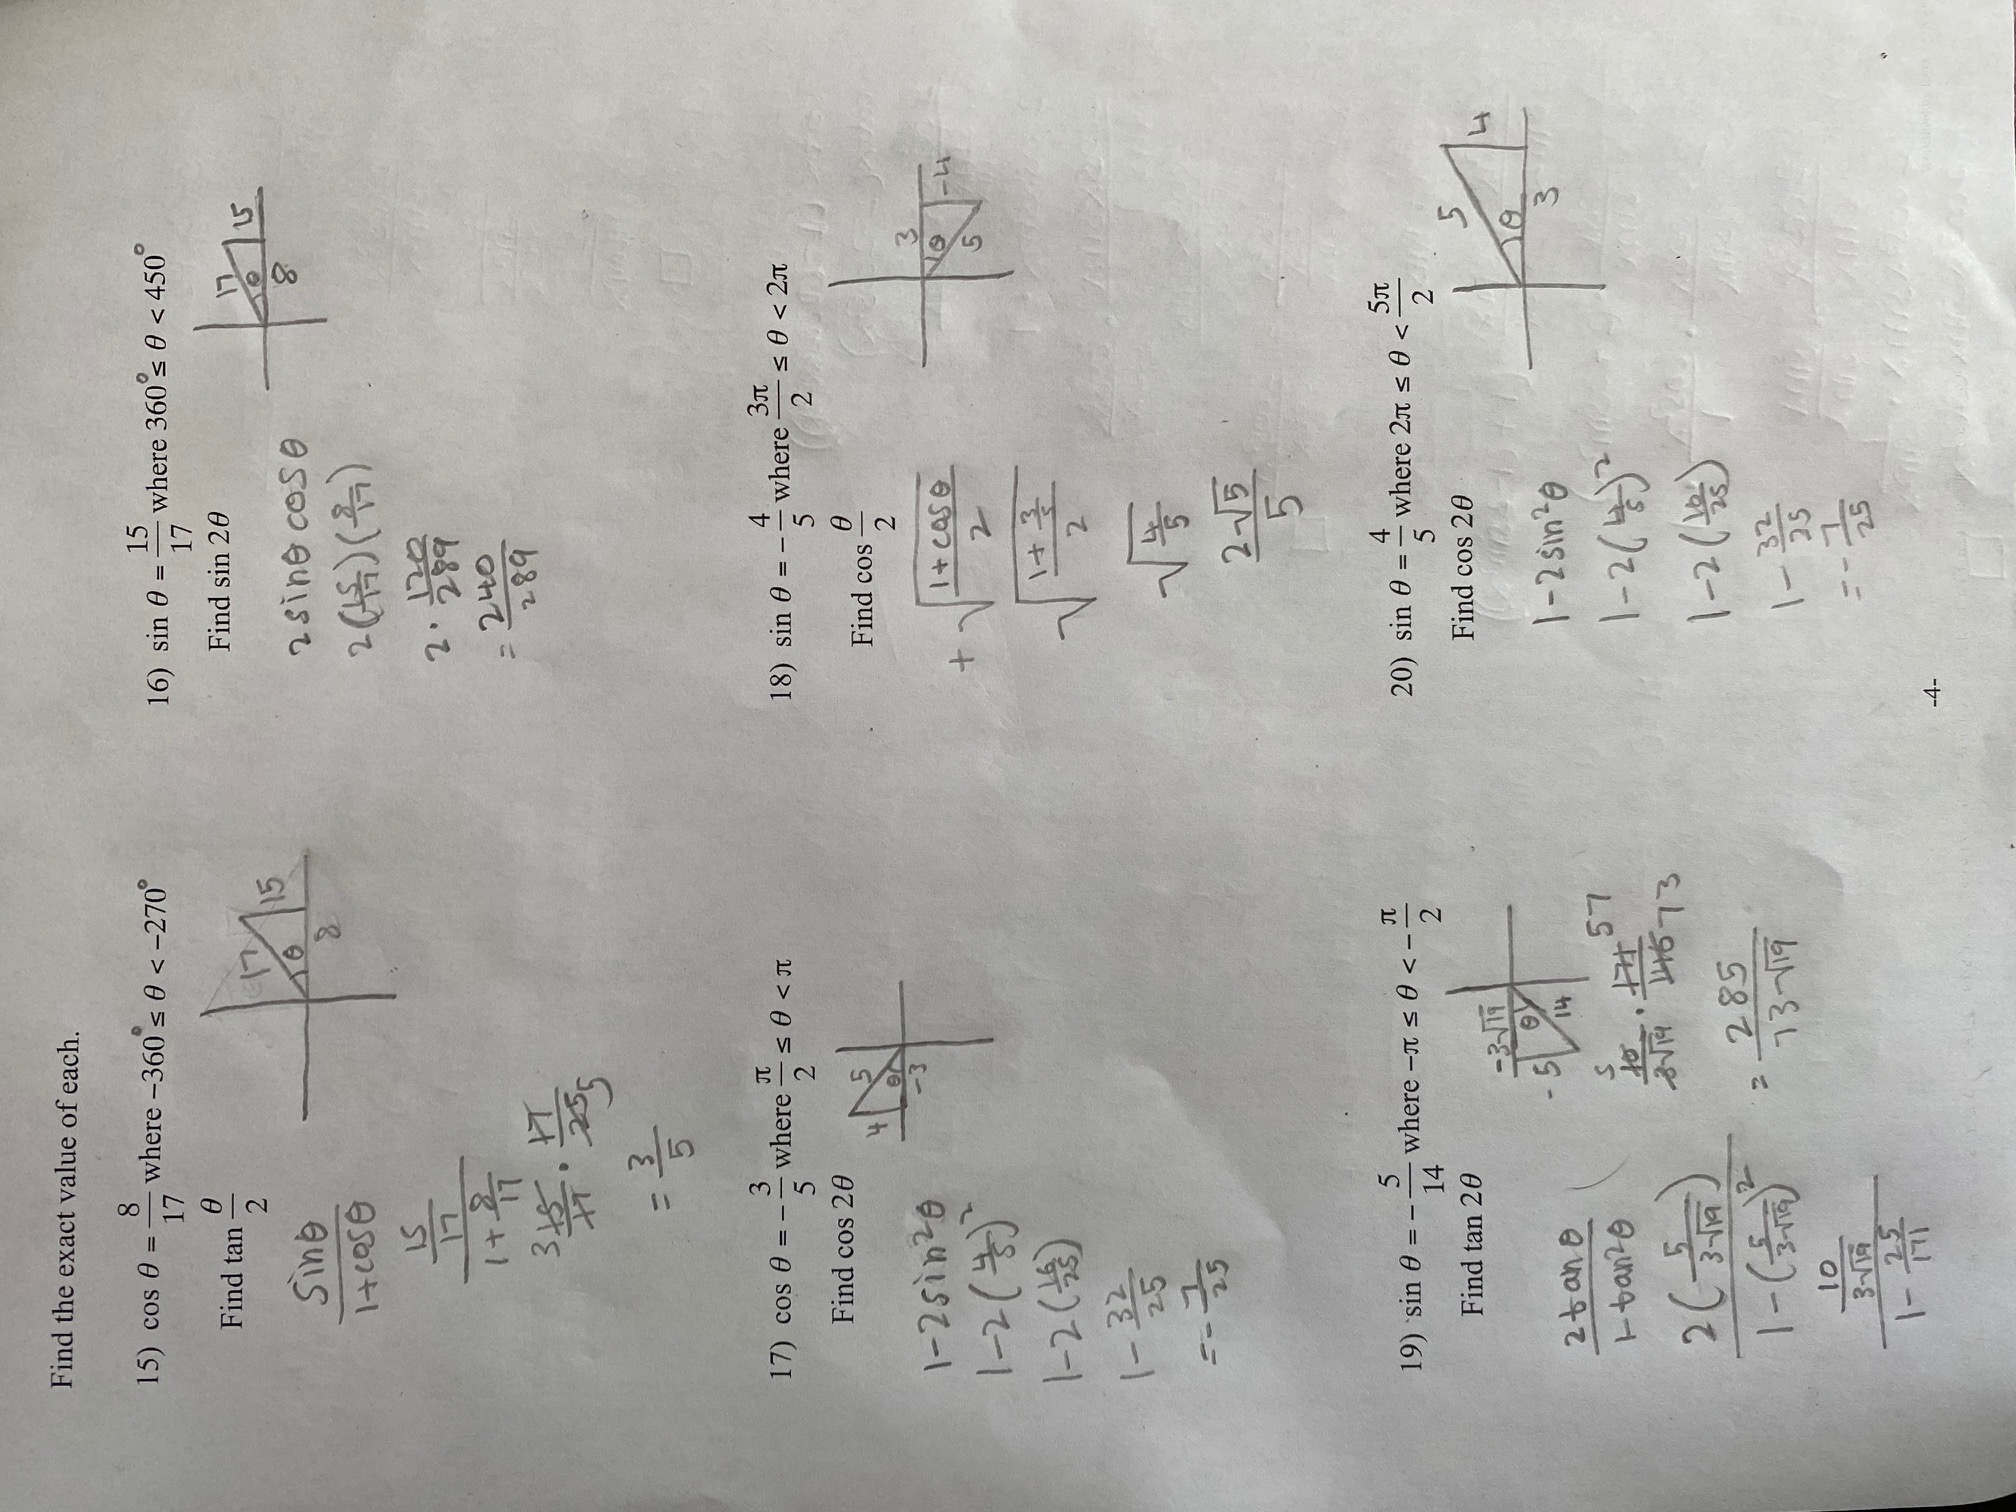 Find the exact value of each.
15) cos θ = 8/17 where −360° ≤ θ < −270°
Find tan θ/2
17
15
θ
8
sinθ / 1+cosθ
15/17 / 1+8/17
3 15/17 · 17/25 5
= 3/5
16) sin θ = 15/17 where 360° ≤ θ < 450°
Find sin 2θ
17
15
θ
8
2 sinθ cosθ
2(15/17)(8/17)
2 · 120/289
= 240/289
17) cos θ = −3/5 where π/2 ≤ θ < π
Find cos 2θ
4
5
θ
-3
1-2sin²θ
1-2(4/5)²
1-2(16/25)
1-32/25
=-7/25
18) sin θ = −4/5 where 3π/2 ≤ θ < 2π
Find cos θ/2
3
θ
-4
5
+ √(1+cosθ / 2)
√(1+3/5 / 2)
√(4/5)
2√5/5
19) sin θ = −5/14 where −π ≤ θ < −π/2
Find tan 2θ
-3√19
θ
-5
14
2tanθ / 1-tan²θ
2(5/3√19) / 1-(5/3√19)²
10/3√19 / 1-25/171
5 10/3√19 · 171/146 57 73
= 285/73√19
20) sin θ = 4/5 where 2π ≤ θ < 5π/2
Find cos 2θ
5
4
θ
3
1-2sin²θ
1-2(4/5)²
1-2(16/25)
1-32/25
=-7/25
-4-